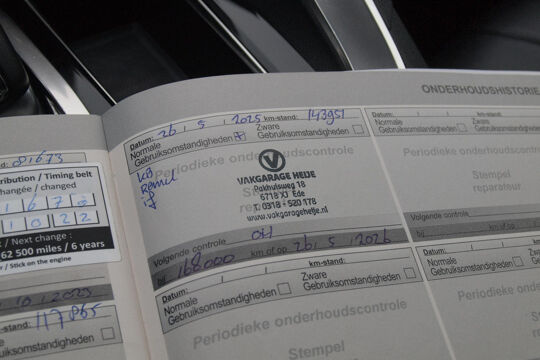 nd: 081673
tribution / Timing belt
changée / changed
1 6 7 8
1 0 2 2
s / Next change :
62 500 miles / 6 years
er / Stick on the engine
-stand: 117865
ONDERHOUDSHISTORIE
Datum: 26 / 5 / 2025 km-stand: 143951
Normale Gebruiksomstandigheden
Zware Gebruiksomstandigheden
Periodieke onderhoudscontrole
VAKGARAGE HEIJE
Pakhuisweg 18
6718 XJ Ede
T. 0318 - 520 178
www.vakgarageheije.nl
Volgende controle OH
bij 168000 km of op 26/5/2026
Datum: / / km-stand:
Normale Gebruiksomstandigheden
Zware Gebruiksomstandigheden
Periodieke onderhoudscontrole
Stempel
Datum: / / km-stand:
Normale Gebruiksomstandigheden
Zware Gebruiksomstandigheden
Periodieke onderhoudscontrole
Stempel
reparateur
Volgende controle
bij km of op
Datum: / /
Normale Gebruiksomstandigheden
Periodieke